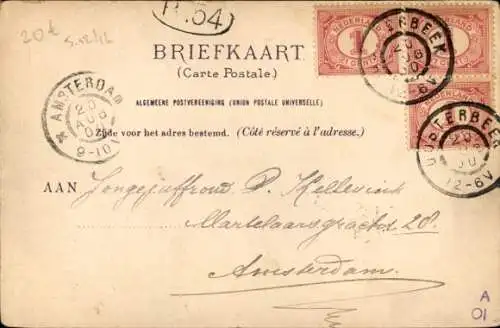 20€
S.12/12
B.54
BRIEFKAART
(Carte Postale.)
ALGEMEENE POSTVEREENIGING (UNION POSTALE UNIVERSELLE)
Zijde voor het adres bestemd. (Côté réservé à l'adresse.)
AMSTERDAM
20
AUG
00
9-10
NEDERLAND
1
OOSTERBEEK
20
AUG
00
12-6V
OOSTERBEEK
20
00
12-6V
AAN Jongejuffrouw P. Kellevink
Martelaarsgracht 28.
Amsterdam.
A
01